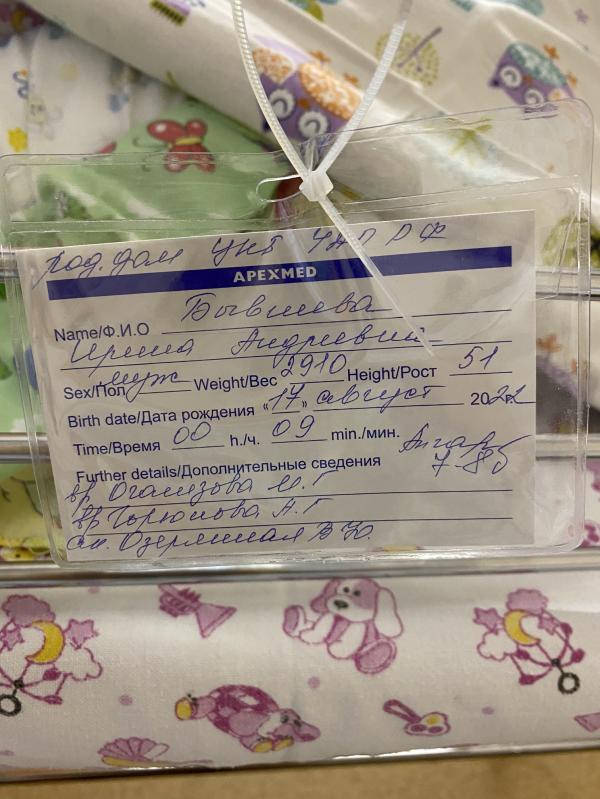 род. дом УКБ УДП РФ
APEXMED
Name/Ф.И.О Бывшева
Ирина Андреевна
Sex/Пол муж Weight/Вес 2910 Height/Рост 51
Birth date/Дата рождения «17» август 2022г
Time/Время 00 h./ч. 09 min./мин. Апгар
Further details/Дополнительные сведения 7-8б
вр Огамзова М. Г
вр Горюнова А. Г
см. Озерянная В Ю.